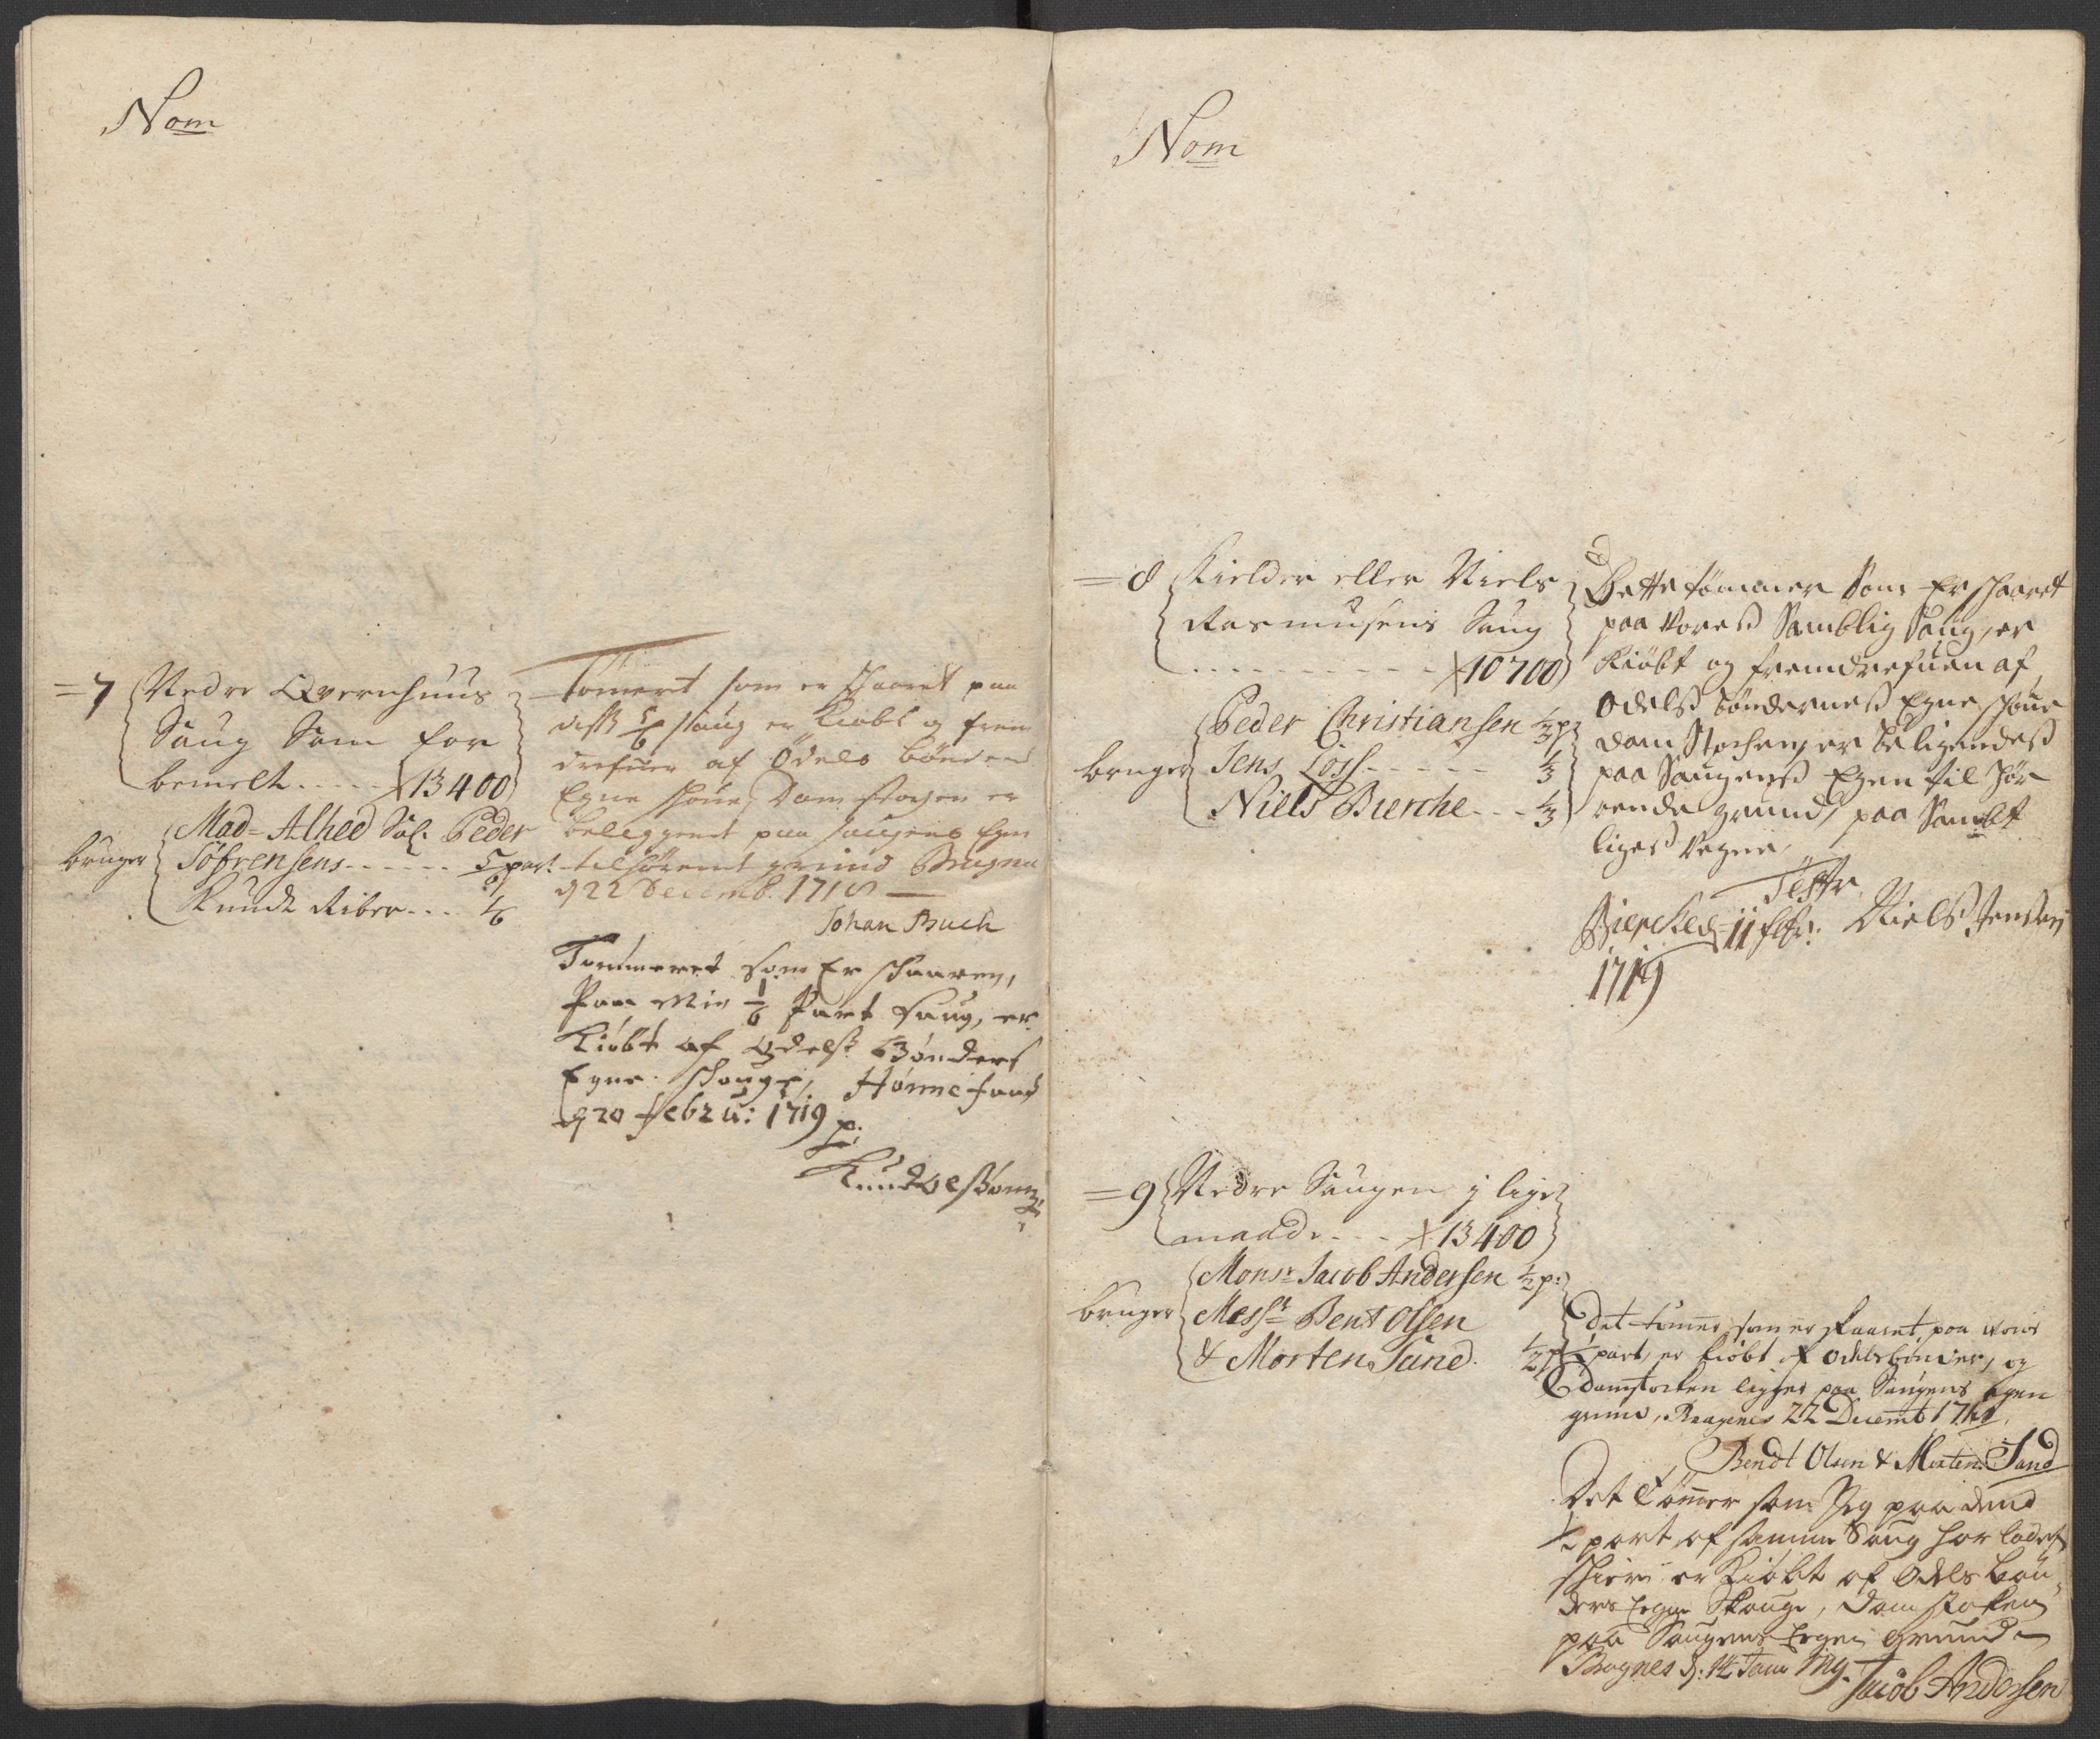 Nom
=7 Nedre Qvernhuus
Saug Som for
bemelt ..... 13400
bruger
Mad= Alhed Sal. Peder
Søfrensens ...... 5/6 part
Knudt Riber ... 1/6
Tømert som er skaaret paa
diss 5/6 Saug er kiøbt og frem
drefuen af Odels bønders
Egne skoue, Damstogen er
beleggend paa saugens Egen
tilhørende grund Bragnes
d 22 Decemb. 1718
Johan Buch
Tømmeret som Er skaaren,
Paa Min 1/6 Part saug, er
Kiøbt af Odelss Bønders
Egne skouge, Hønnefoss
d 20 Febru: 1719 p:
Knud Olssøn
Nom
=8 Kielder eller Niels
Rasmusens Saug
10700
bruger
Peder Christiansen 1/3 p:
Jens Loss ..... 1/3
Niels Bierche ... 1/3
Dette tømmer Som Er skaaret
paa Voress Samblig Saug, er
Kiøbt og fremdrefuen af
Odelss bønderness Egne skoue
damStochen er beligendess
paa Saugenss Egen til hør
rende grund, paa Sambt
ligess Vegne
Test
Bierched 11 febr: Niels Jensen
1719
=9 Nedre Saugen j lige
maade ... 13400
bruger
Monsr Jacob Andersen 1/2 p:
Messrs Bent Olsen
& Morten Sand. 1/2 p
det tømer som er skaaret paa vores
1/2 part, er kiøbt af odelsbønder, og
damstocken ligger paa Saugens egen
grund, Bragenes 22 Decemb 1718
Bendt Olsen & Morten Sand
Det Tømer som Jeg paa dend
1/2 part af samme Saug har ladet
skiere er Kiøbt af Odels bøn„
ders Eegne Skouge, Damstoken
paa Saugens Eegen grund
Bragnes d: 14 Janu 1719. Jacob Andersen